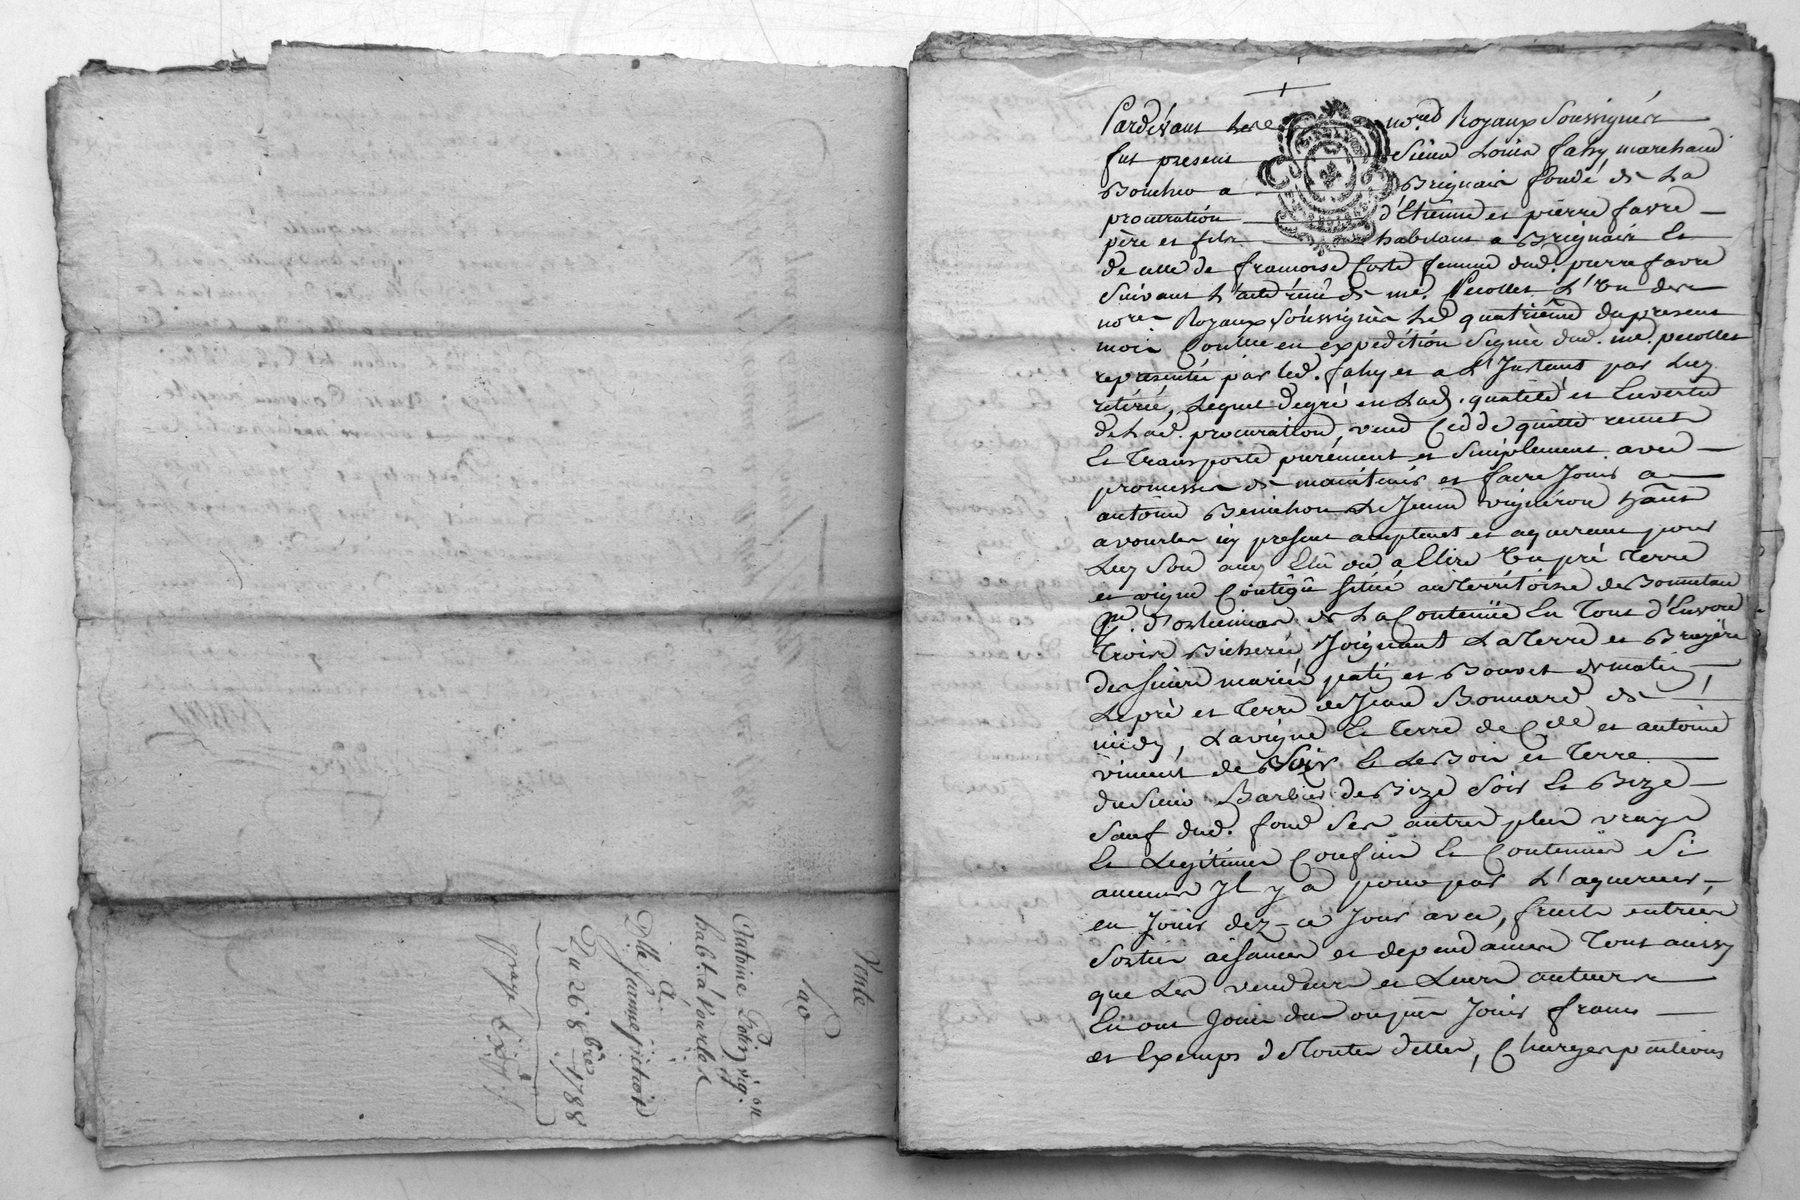 Vente
Lad
Antoine Patin vig.on
habt. à Vourles
A
Dlle Jeanne
Du 26 8bre 1788
Pardevant Les no.res Royaux Soussignés
fut present Sieur Louis fahy marchand
Boucher a Brignais fondé de La
procuration d'Etienne et pierre favre
père et fils habitans a Brignais Et
de celle de francoise Coste femme dud. pierre favre
Suivant L'acte reçu de me. Pecollet L'un des
nores. Royaux Soussignés Le quatrième du present
mois Conttre en expédition Signée dud. me. pecollet
representée par led. fahy et a L'Instant par Luy
retirée, Lequel de gré en Lad. qualité et En vertu
de Lad. procuration, vend Cedde quitte remet
Et Transporte purement et Simplement avec
promesse de maintenir et faire Jouir a
antoine Benichon Le Jeune vigneron
a vourles icy present acceptant et aquereur pour
Luy Son amy Elû ou a Elire Un pré Terre
et vigne Contigüe Situé au Territoire de Bonnetan
de La Contenüe En Tout d'Environ
Trois Bicherée, Joignant La Terre et Bruyère
des Sieurs et Bouvet de matin,
Le pré et Terre de Jean Bonnard de
midy, La vigne Et Terre de et antoine
vincent de Soir Et Le Bois et Terre
du Sieur Barbier de Bize Soir Et Bize
Sauf dud. fond Ses autres plus vrays
Et Legitimes Confins Et Contenües Si
aucuns Il y a pour par L'aquereur,
en Jouir dez-ce Jour avec, fruits entrées
Sorties aisances et dependances Tout aussy
que Les vendeurs et Leurs auteurs
En ont Joui dû ou pû Jouir francs
et Exempts de Toutes dettes, Charges pentions